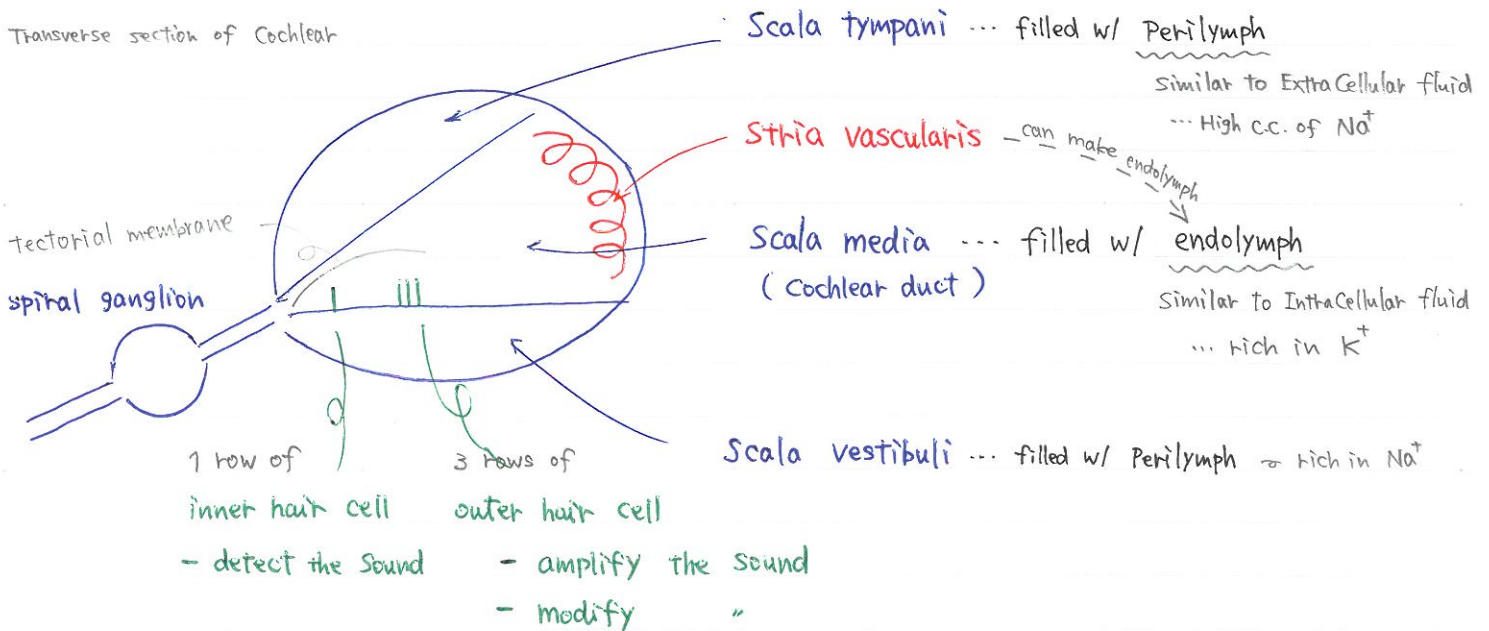 Transverse section of Cochlear
Scala tympani ... filled w/ Perilymph
Similar to ExtraCellular fluid
... High c.c. of Na⁺
Stria vascularis
can make endolymph
tectorial membrane
Scala media ... filled w/ endolymph
(Cochlear duct)
Similar to IntraCellular fluid
... rich in K⁺
spiral ganglion
Scala vestibuli ... filled w/ Perilymph rich in Na⁺
1 row of
inner hair cell
- detect the Sound
3 rows of
outer hair cell
- amplify the Sound
- modify "